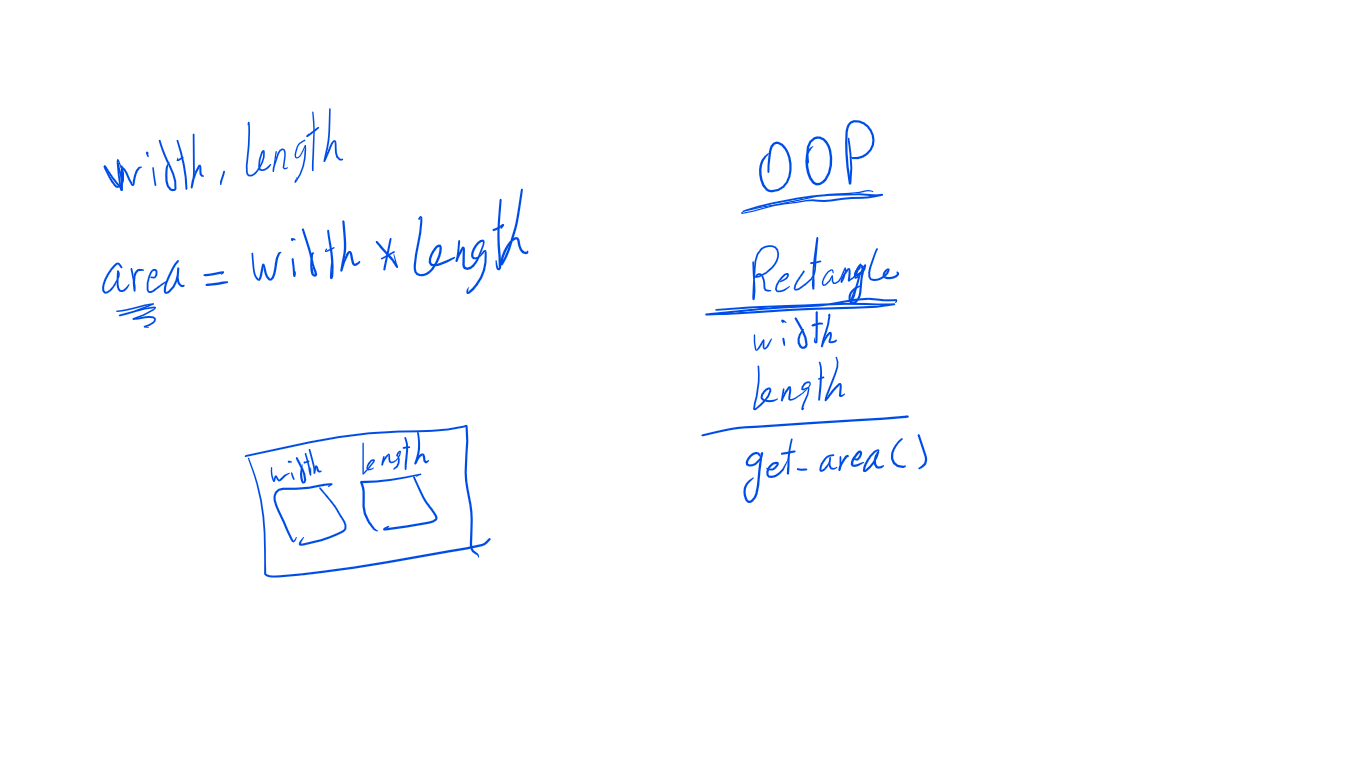 width, length
area = width * length
width length
OOP
Rectangle
width
length
get_area()